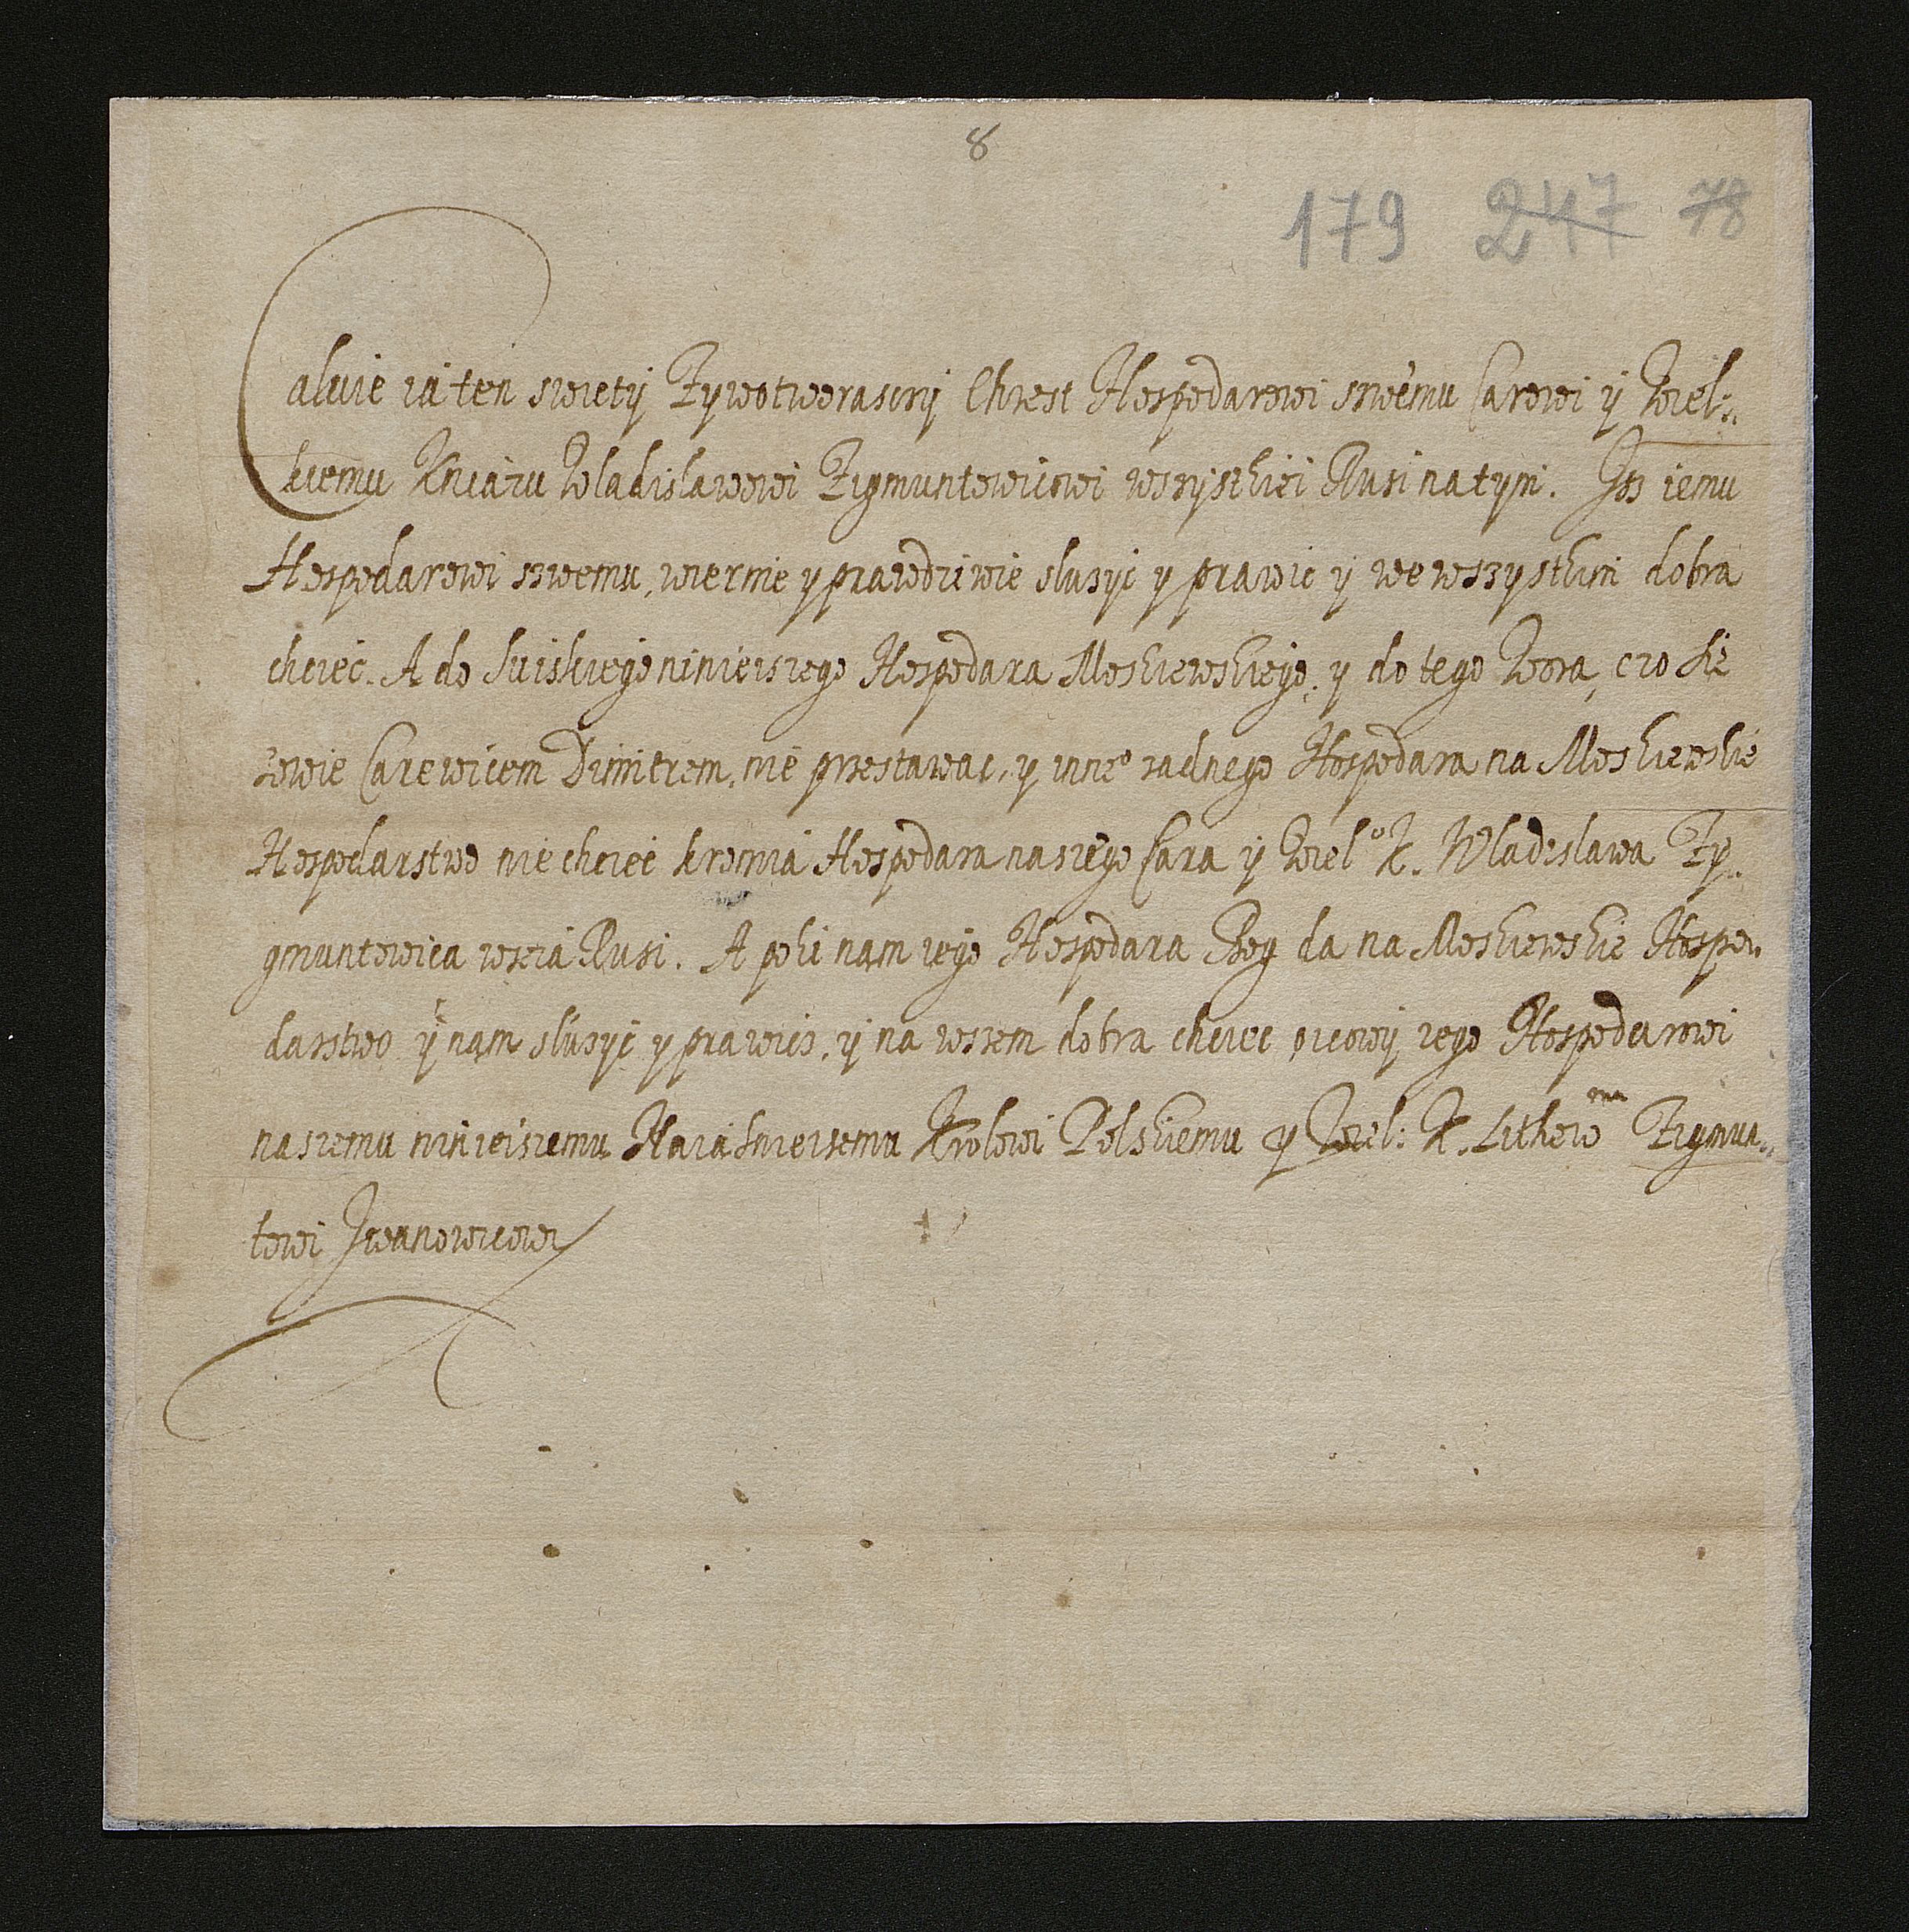 8
179 247 78
Caluie ia ten swiety Zywotworascny Chrest Hospodarowi swemu Carowi y Wiel:
kiemu Kniazu Wladislawowi Zigmuntowicowi wszysthiei Rusi na tym. Isz iemu
Hospodarowi swemu, wiernie y prawdziwie sluzyc y prawic y we wszysthim dobra
chciec. A do Suiskiego ninieiszego Hospodara Moskiewskiego, y do tego Wora, czo sie
zowie Carewicem Dimitrem, nie przestawac, y inneo zadnego Hospodara na Moskiewskie
Hospodarstwo nie chciec kromia Hospodara naszego Cara y Wielo K. Wladislawa Zy
gmuntowica wszeia Rusi. A poki nam iego Hospodara Bog da na Moskiewskie Hospo
darstwo y nam sluzyc y prawic, y na wszem dobra chciec oicowy iego Hospodarowi
naszemu ninieiszemu Naiasnieisemu Krolowi Polskiemu y Wiel: K. Lithewmu Zigmun
towi Iwanowicowi